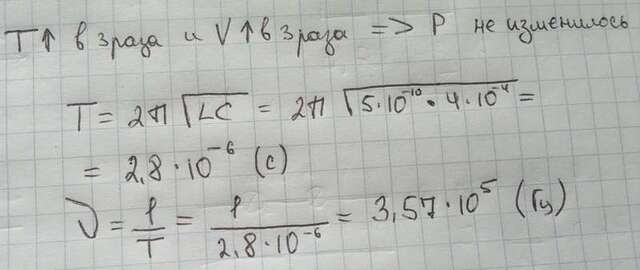 T↑ в 3 раза и V↑ в 3 раза => P не изменилось
T = 2π √LC = 2π √5·10⁻¹⁰ · 4·10⁻⁴ =
= 2,8 · 10⁻⁶ (с)
ν = 1/T = 1/2,8·10⁻⁶ = 3,57 · 10⁵ (Гц)